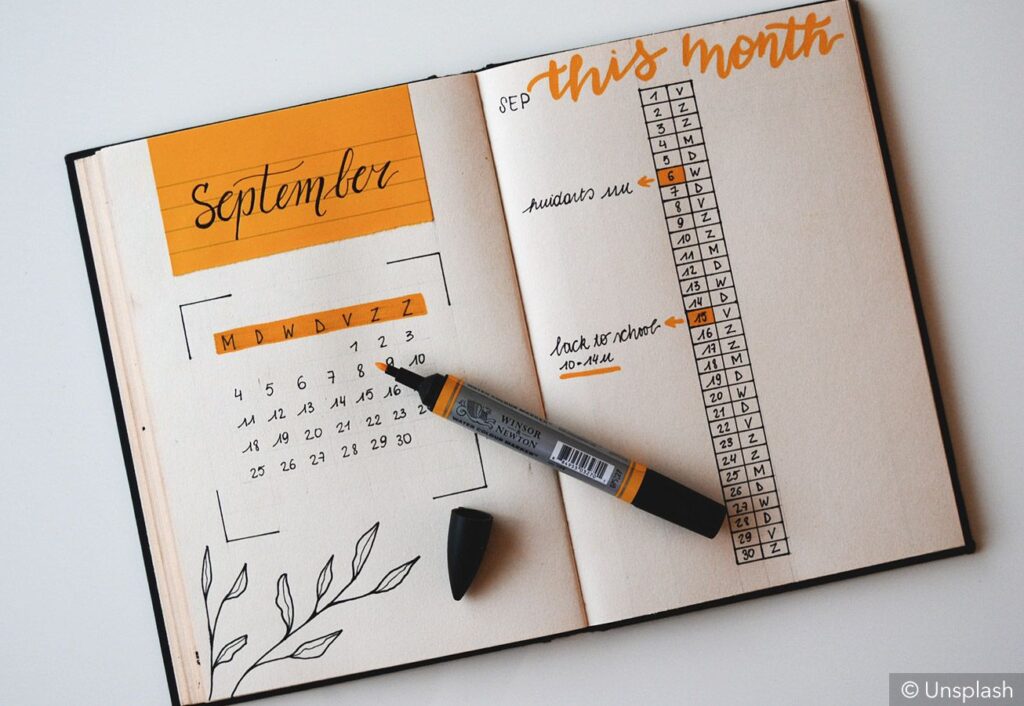 September
M D W D V Z Z
1 2 3
4 5 6 7 8 9 10
11 12 13 14 15 16
18 19 20 21 22 23
25 26 27 28 29 30
this month
SEP
1 V
2 Z
3 Z
4 M
5 D
huidarts
6 W
7 D
8 V
9 Z
10 Z
11 M
12 D
13 W
14 D
back to school
10-14u
15 V
16 Z
17 Z
18 M
19 D
20 W
21 D
22 V
23 Z
24 Z
25 M
26 D
27 W
28 D
29 V
30 Z
WINSOR
& NEWTON
WATER COLOUR MARKER
© Unsplash